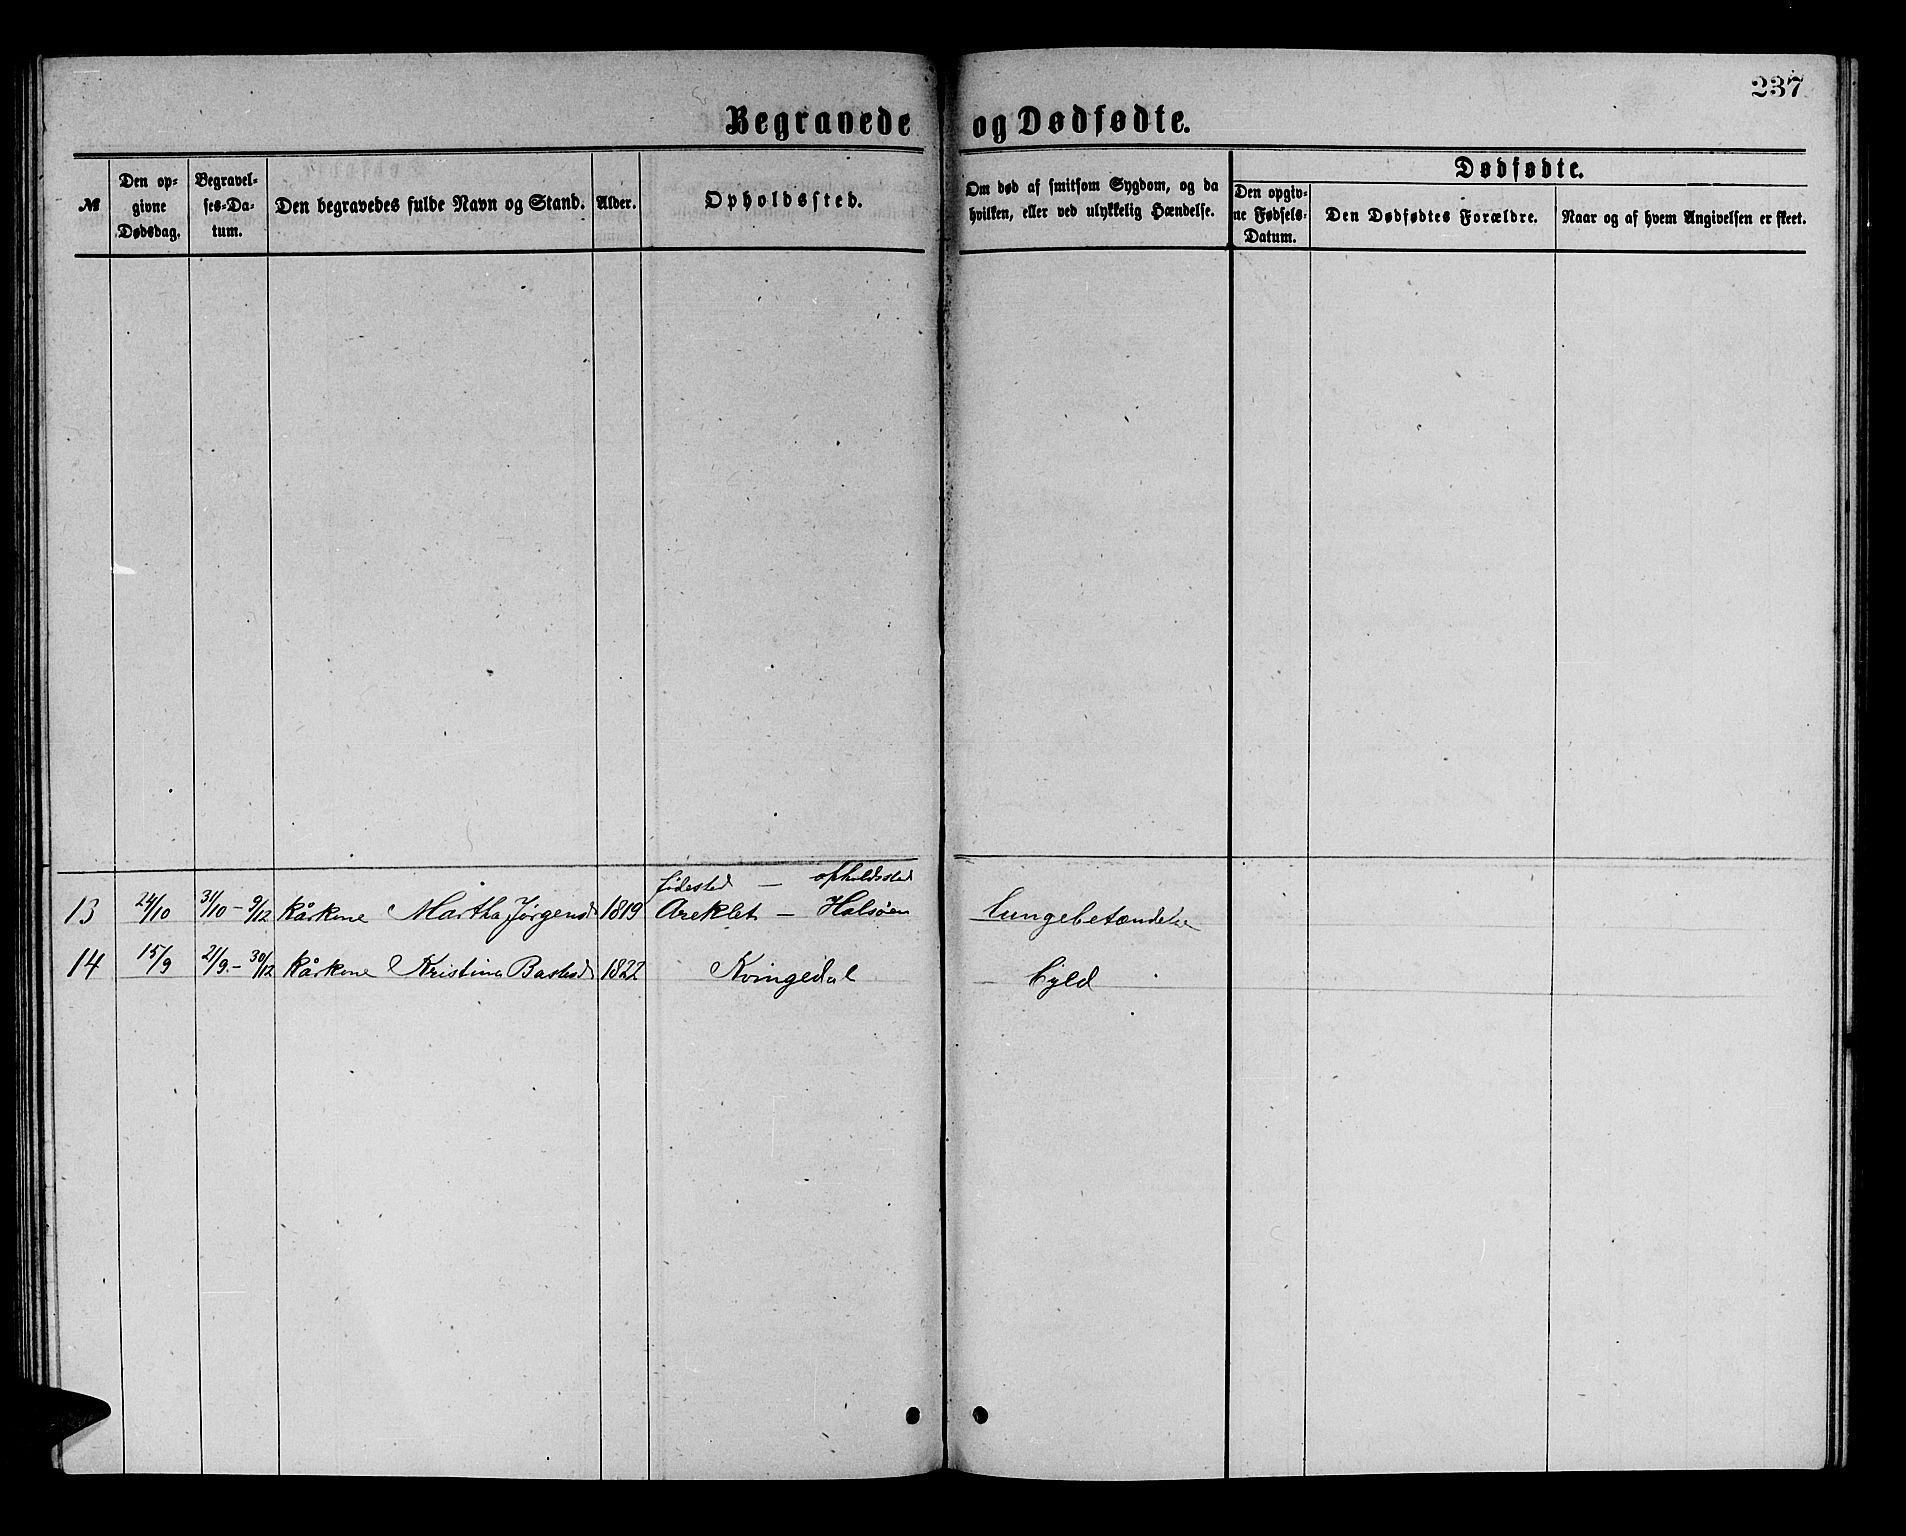 237
Begravede og Dødfødte.
№
Den opgivne Dødsdag.
Begravelses-Datum.
Den begravedes fulde Navn og Stand.
Alder.
Opholdssted.
Om død af smitsom Sygdom, og da hvilken, eller ved ulykkelig Hændelse.
Dødfødte.
Den opgivne Fødsels-Datum.
Den Dødfødtes Forældre.
Naar og af hvem Angivelsen er skeet.
fødested — opholdssted
13 24/10 31/10 - 9/12 Kårkone Martha Jørgensd 1819 Areklet — Halsøen Lungebetændelse
14 15/9 21/9 - 30/12 Kårkone Kristina Bastesd 1822 Kvingedal Byld